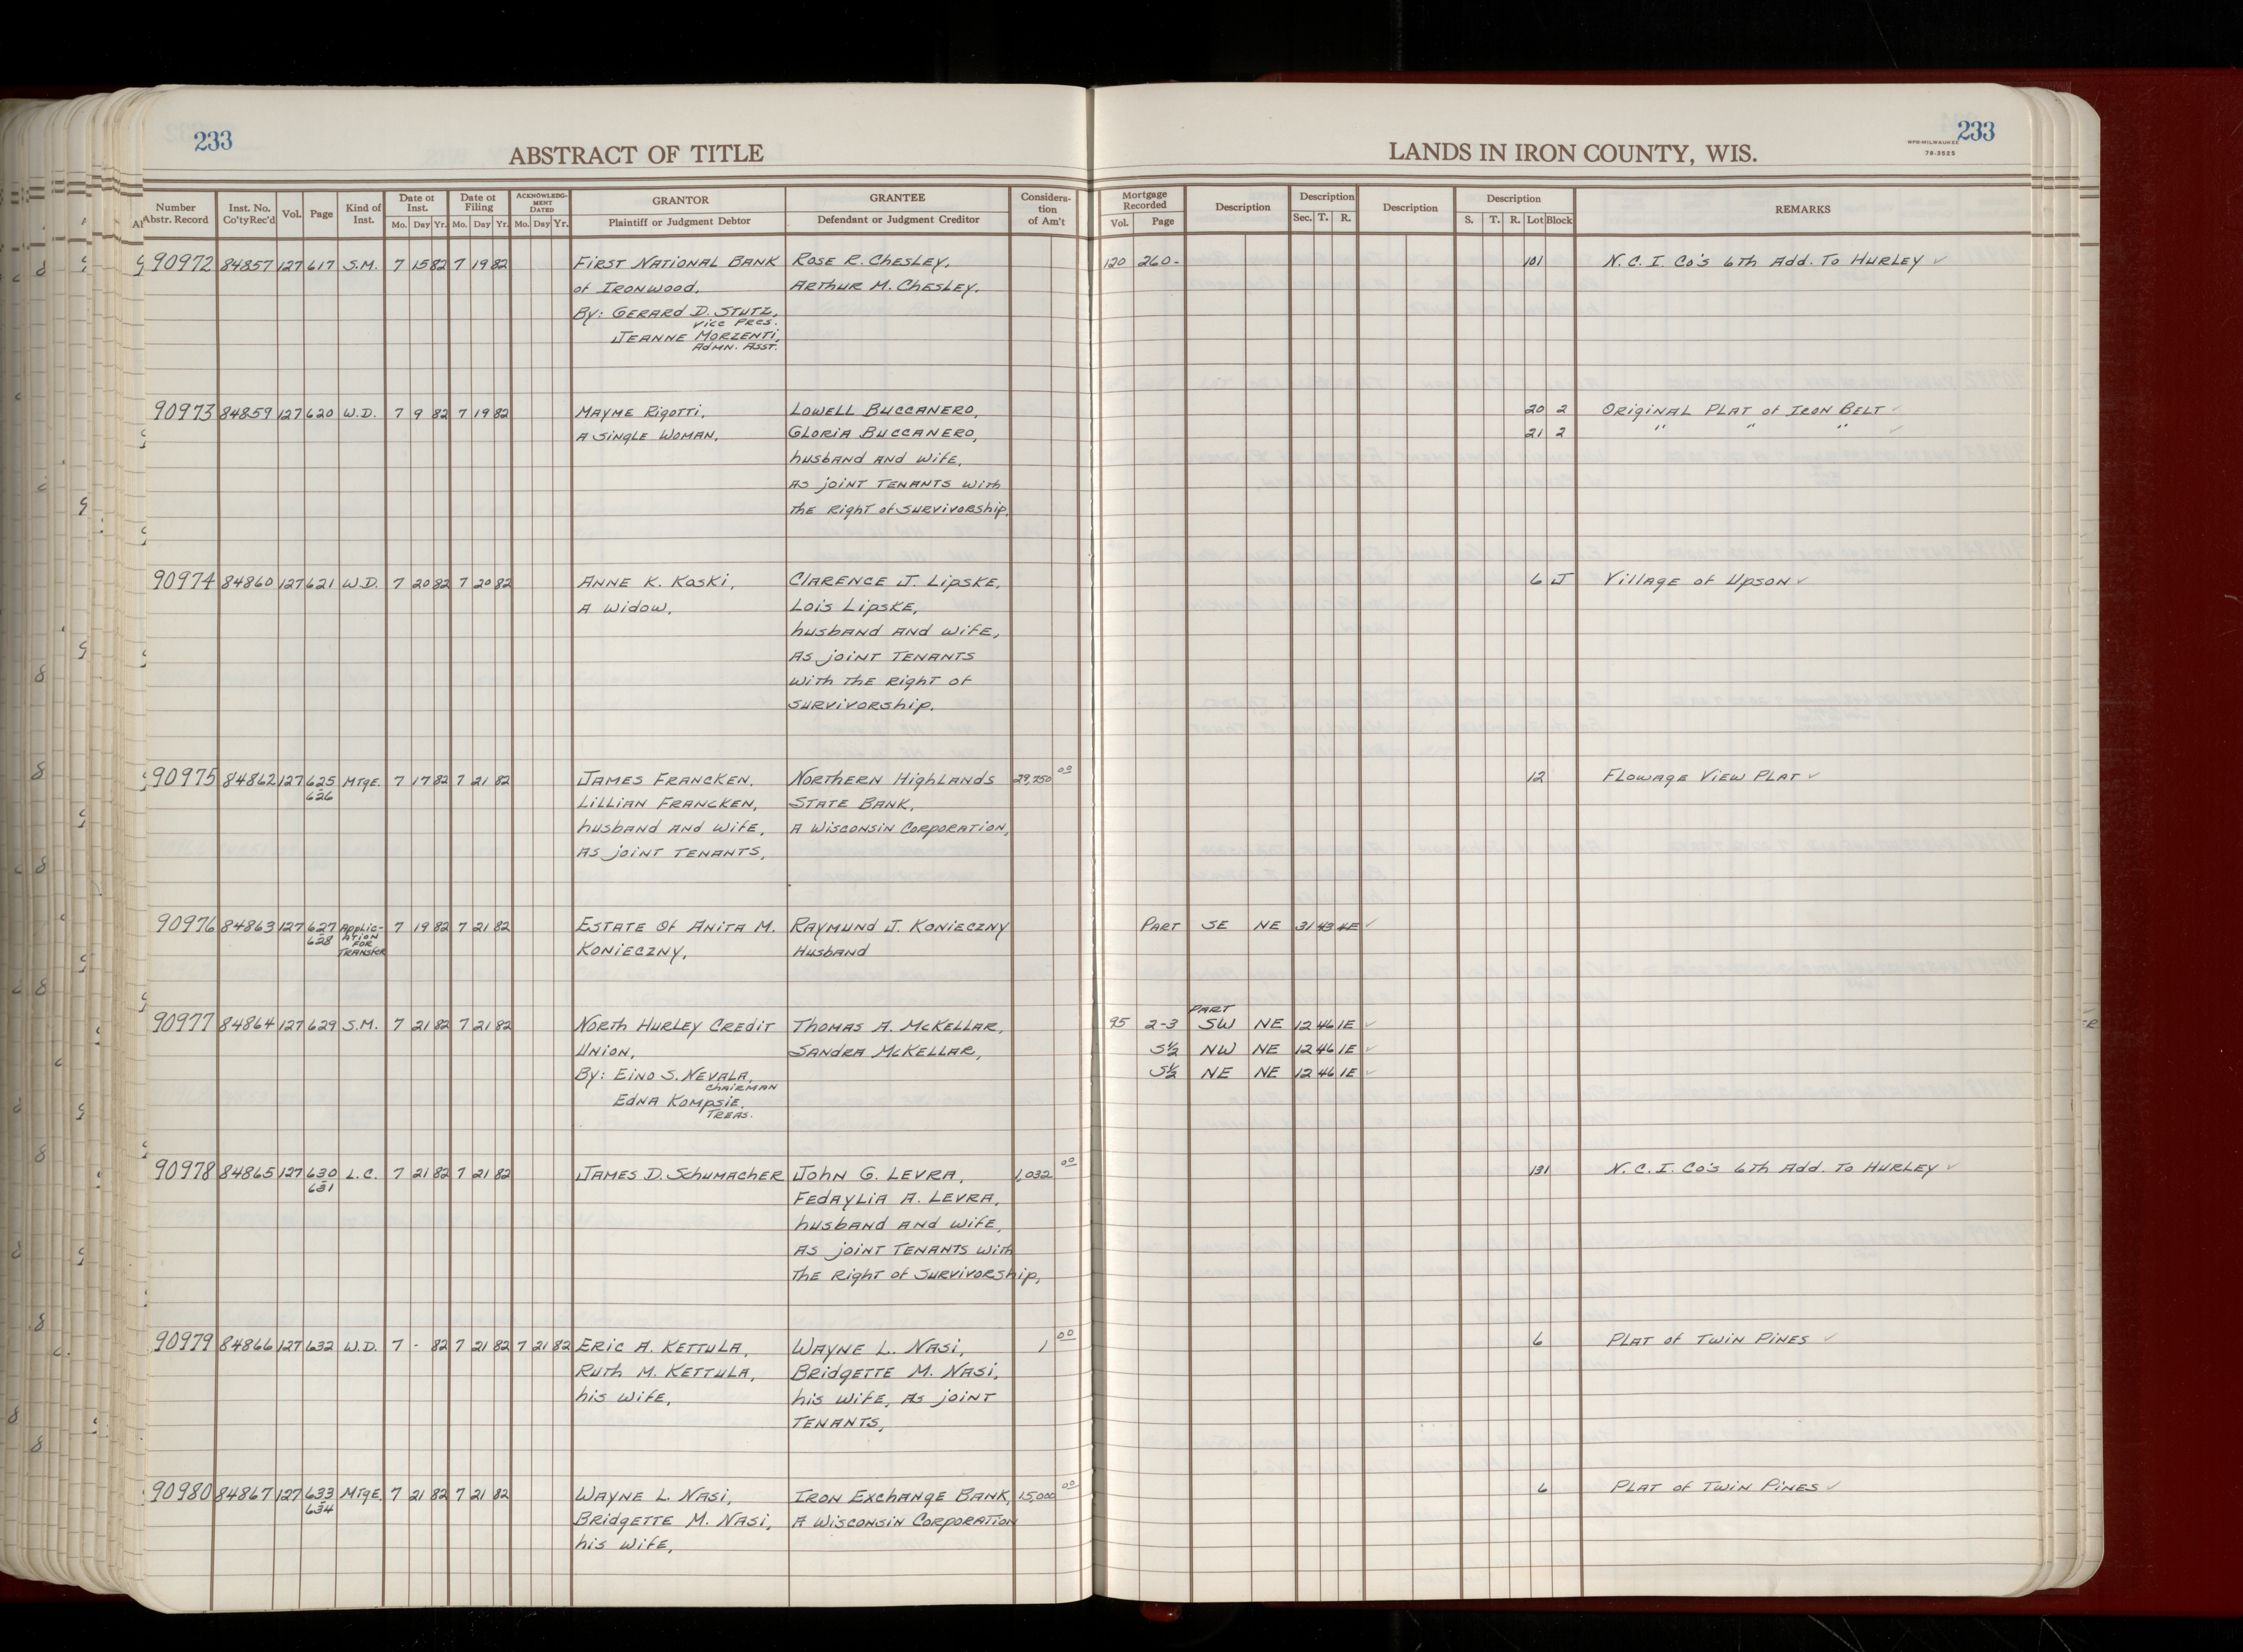 233
ABSTRACT OF TITLE
LANDS IN IRON COUNTY, WIS.
233
WPB-MILWAUKEE
78-3525
Number Abstr. Record | Inst. No. Co'ty Rec'd | Vol. | Page | Kind of Inst. | Date of Inst. Mo. Day Yr. | Date of Filing Mo. Day Yr. | ACKNOWLEDGMENT DATED Mo. Day Yr. | GRANTOR Plaintiff or Judgment Debtor | GRANTEE Defendant or Judgment Creditor | Consideration of Am't | Mortgage Recorded Vol. Page | Description | Description Sec. T. R. | Description | Description S. T. R. Lot Block | REMARKS
90972 84857 127 617 S.M. 7 15 82 7 19 82 First National Bank Rose R. Chesley, 120 260- 101 N.C.I. Co's 6th Add. To Hurley ✓
of Ironwood, Arthur M. Chesley.
By: Gerard D. Stutz,
Vice Pres.
Jeanne Morzenti,
Admn. Asst.
90973 84859 127 620 W.D. 7 9 82 7 19 82 Mayme Rigotti, Lowell Buccanero, 20 2 Original Plat of Iron Belt ✓
A single woman, Gloria Buccanero, 21 2 " " " ✓
husband and wife,
as joint tenants with
the right of survivorship.
90974 84860 127 621 W.D. 7 20 82 7 20 82 Anne K. Koski, Clarence J. Lipske, 6 J Village of Upson ✓
A widow, Lois Lipske,
husband and wife,
as joint tenants
with the right of
survivorship.
90975 84862 127 625 Mtge. 7 17 82 7 21 82 James Francken, Northern Highlands 29,750 00 12 Flowage View Plat ✓
626 Lillian Francken, State Bank,
husband and wife, A Wisconsin Corporation,
as joint tenants,
90976 84863 127 627 Applic- 7 19 82 7 21 82 Estate of Anita M. Raymund J. Konieczny Part SE NE 31 43 4E ✓
628 ation
for
Transfer Konieczny, Husband
Part
90977 84864 127 629 S.M. 7 21 82 7 21 82 North Hurley Credit Thomas A. McKellar, 95 2-3 SW NE 12 46 1E ✓
Union, Sandra McKellar, S½ NW NE 12 46 1E ✓
By: Eino S. Nevala, S½ NE NE 12 46 1E ✓
Chairman
Edna Kompsie,
Treas.
90978 84865 127 630 L.C. 7 21 82 7 21 82 James D. Schumacher John G. Levra, 1,032 00 131 N.C.I. Co's 6th Add. To Hurley ✓
631 Fedaylia A. Levra,
husband and wife,
as joint tenants with
the right of survivorship,
90979 84866 127 632 W.D. 7 - 82 7 21 82 7 21 82 Eric A. Kettula, Wayne L. Nasi, 1 00 6 Plat of Twin Pines ✓
Ruth M. Kettula, Bridgette M. Nasi,
his wife, his wife, as joint
tenants,
90980 84867 127 633 Mtge. 7 21 82 7 21 82 Wayne L. Nasi, Iron Exchange Bank, 15,000 00 6 Plat of Twin Pines ✓
634 Bridgette M. Nasi, A Wisconsin Corporation
his wife,